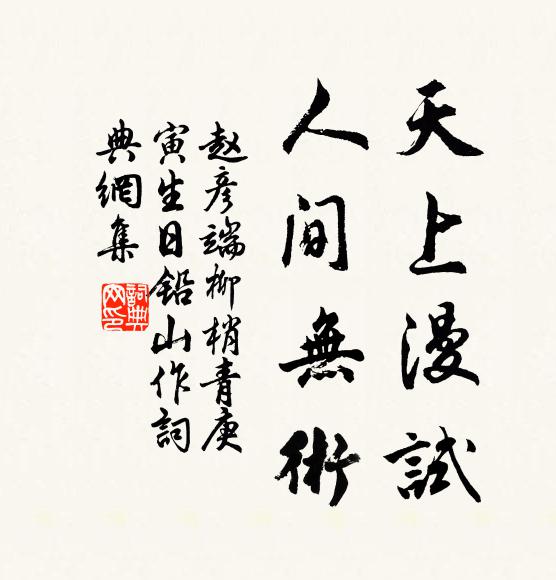 天上漫試
人間無術
赵彦端柳梢青庚
寅生日鉛山作詞
典網集
詞典
网印